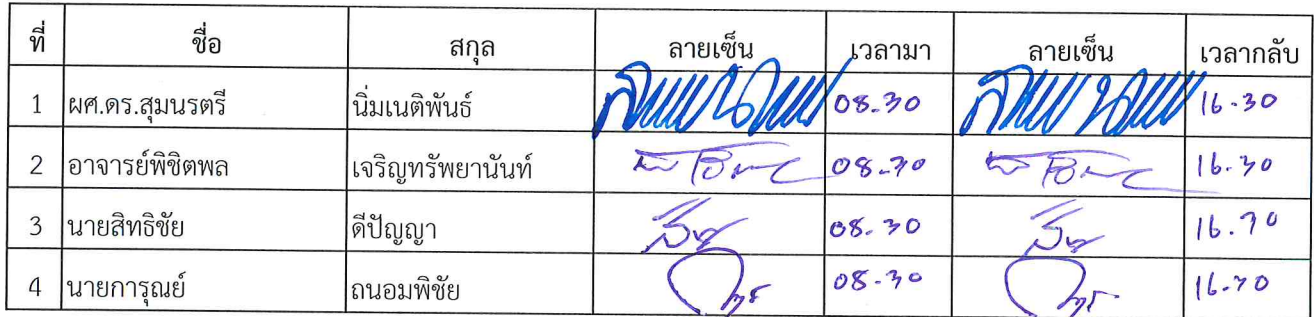 ที่ ชื่อ สกุล ลายเซ็น เวลามา ลายเซ็น เวลากลับ
1 ผศ.ดร.สุมนรตรี นิ่มเนติพันธ์ 08.30 16.30
2 อาจารย์พิชิตพล เจริญทรัพยานันท์ 08.30 16.30
3 นายสิทธิชัย ดีปัญญา 08.30 16.30
4 นายการุณย์ ถนอมพิชัย 08.30 16.30